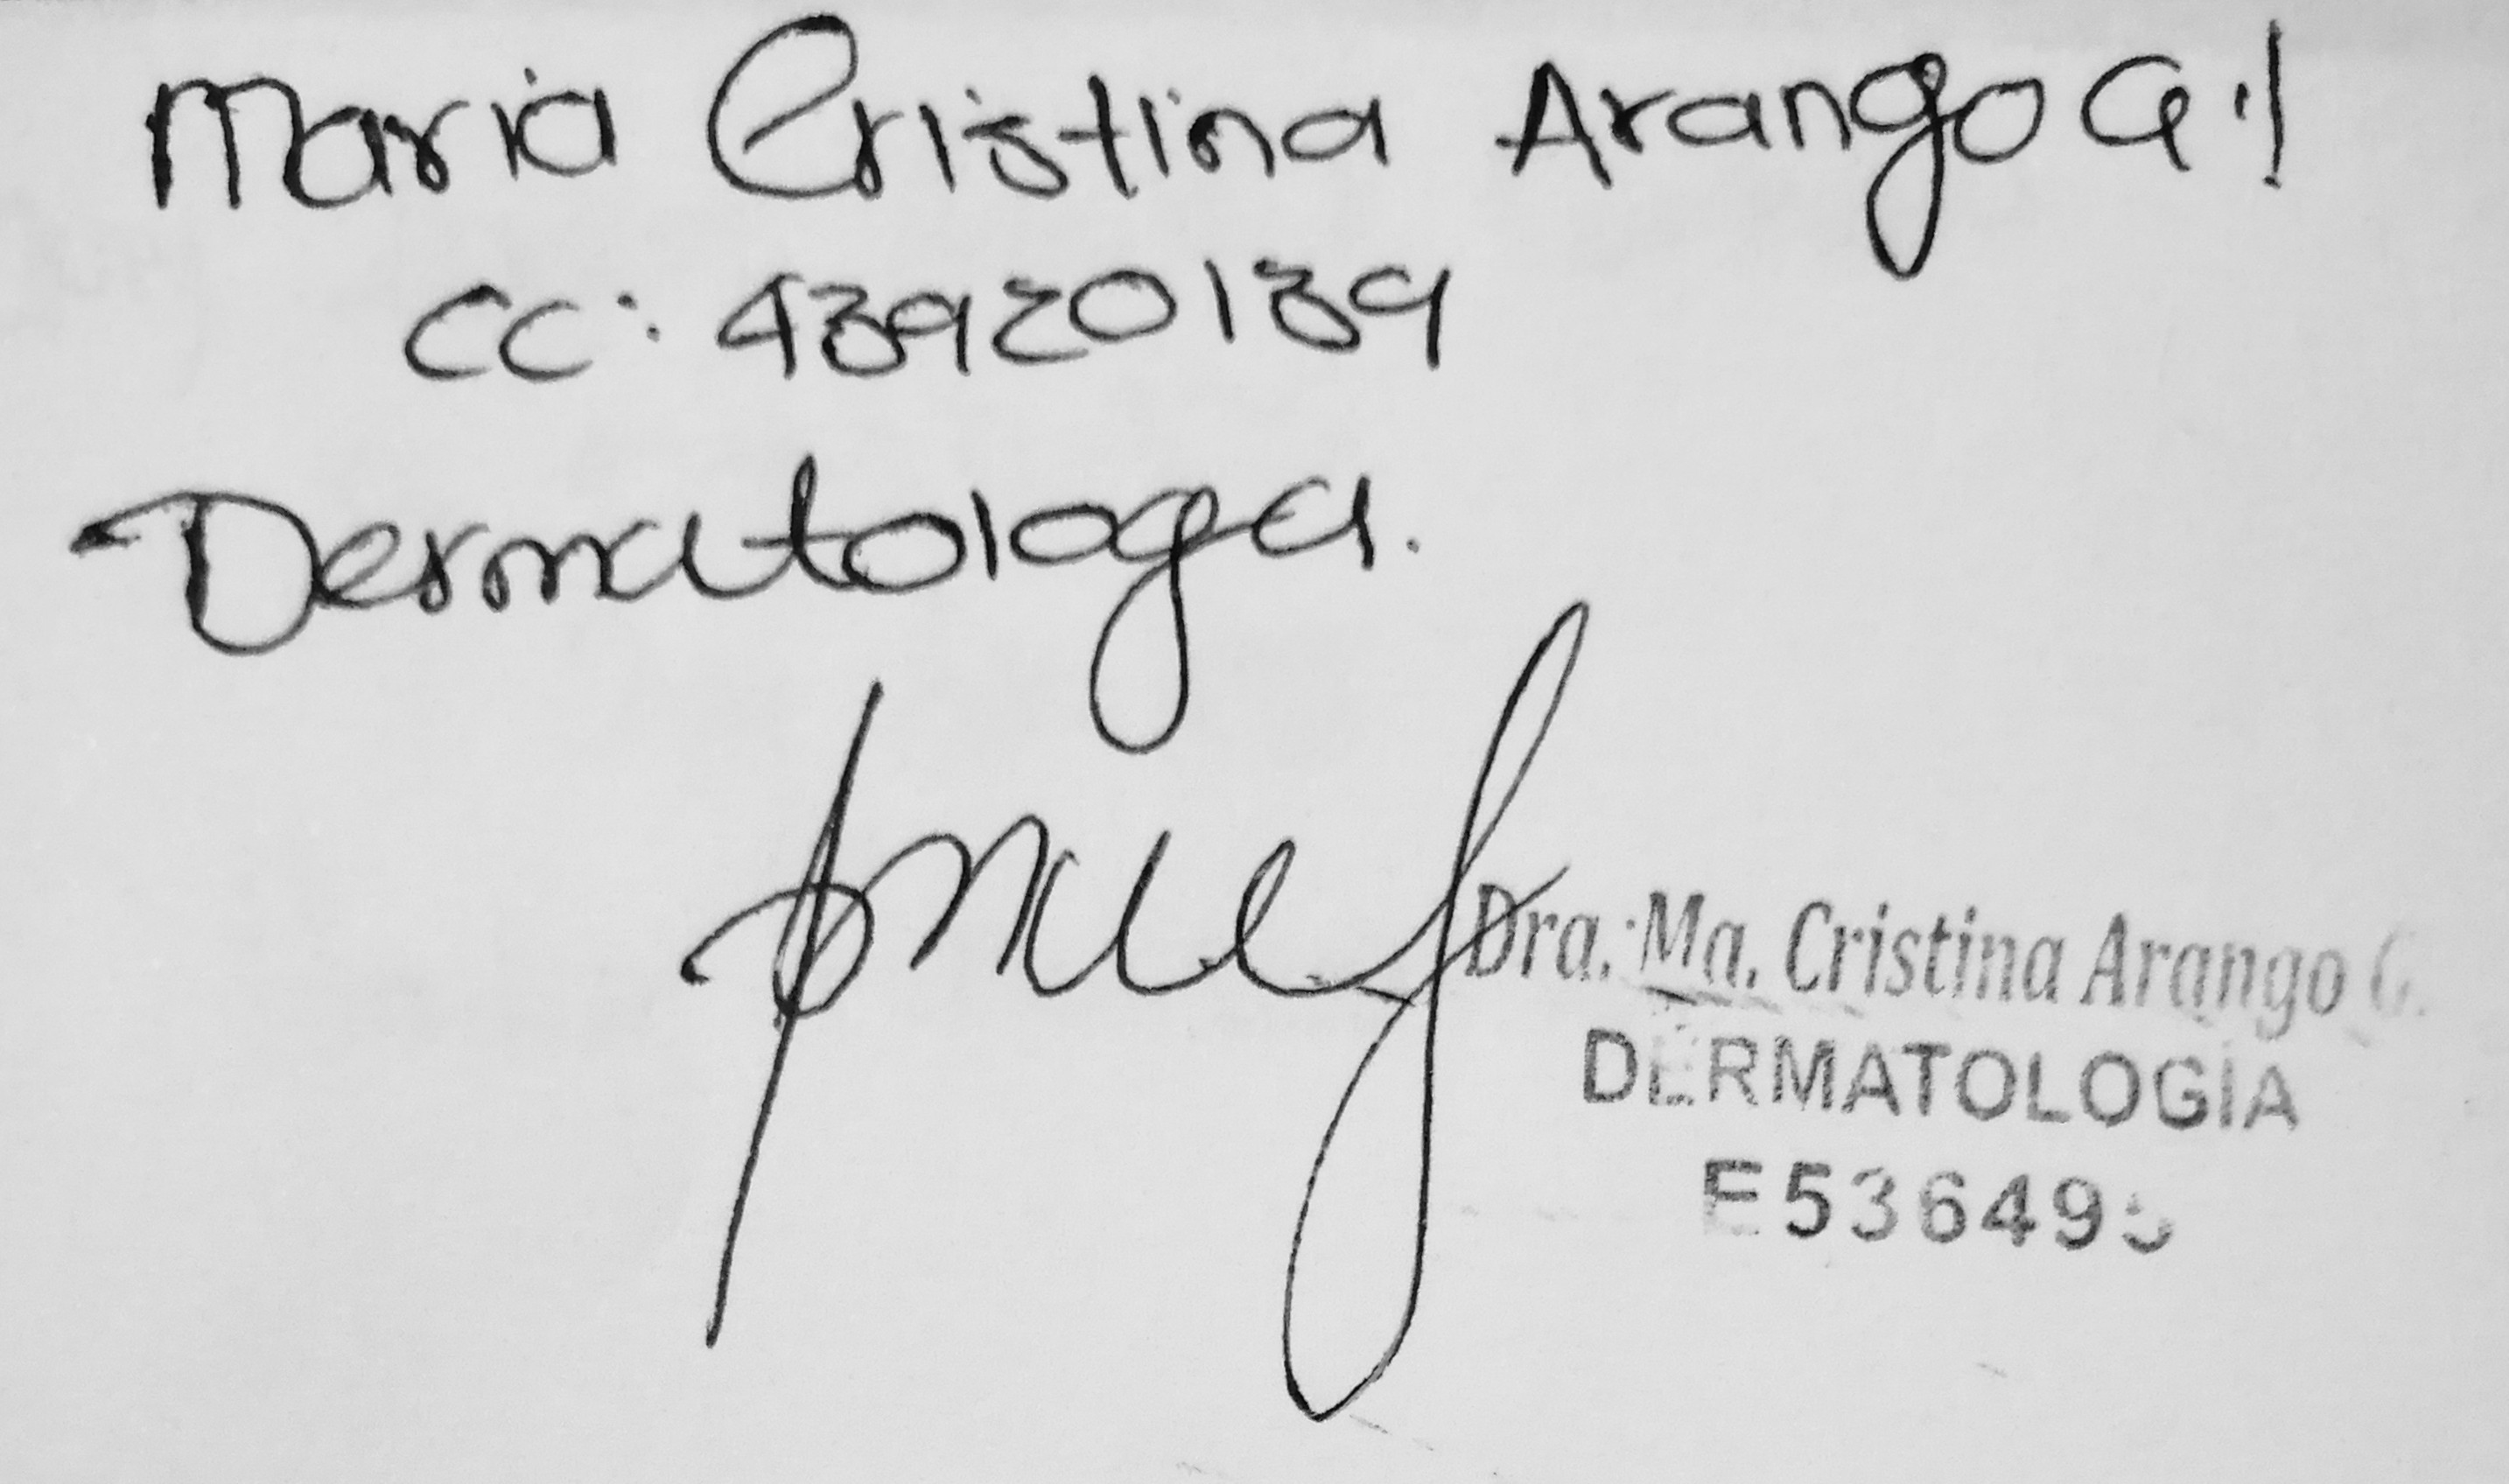 Maria Cristina Arango Gil
CC: 43920139
Dermatologa.
Dra. Ma. Cristina Arango G.
DERMATOLOGÍA